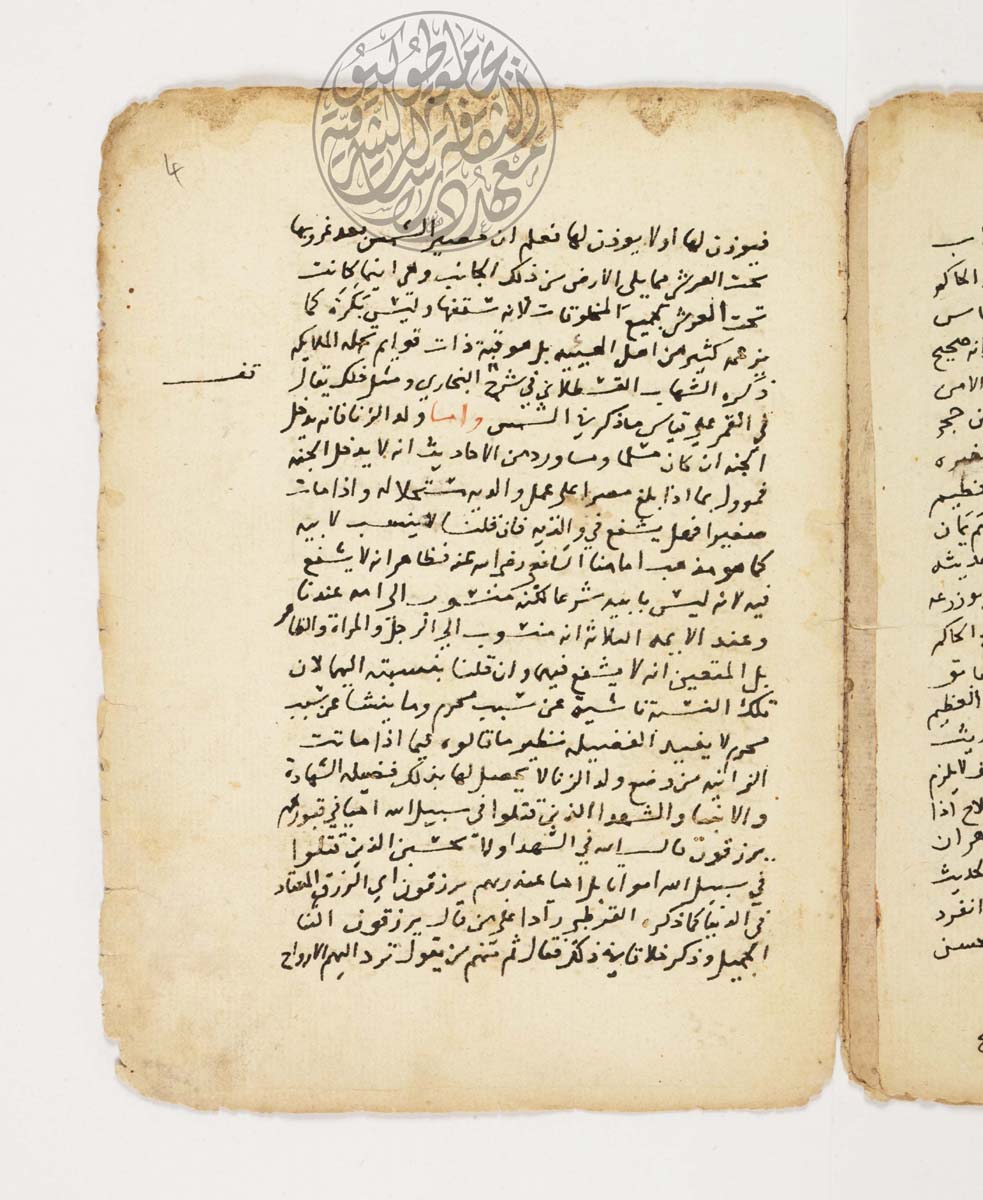 فيوذن لها او لا يوذن لها فعلم ان مصير الشمس بعد غروبها
تحت العرش مما يلي الارض من ذلك الجانب وهي اينما كانت
تحت العرش كجميع المخلوقات لانه سقفها وليس بكرة كما
يزعمه كثير من اهل الهييه بل هو قبة ذات قوايم تحمله الملايكه
ذكره الشهاب القسطلاني في شرح البخاري ومثل ذلك يقال
في القمر على قياس ما ذكر في الشمس واما ولد الزنا فانه يدخل
الجنه ان كان مسلما وما ورد من الاحاديث انه لا يدخل الجنه
فموول بما اذا بلغ مصرا على عمل والديه مستحلا له واذا مات
صغيرا فهل يشفع في والديه فان قلنا لا ينسب لابيه
كما هو مذهب امامنا الشافعي رضي الله عنه فظاهر انه لا يشفع
فيه لانه ليس بابيه شرعا لكنه منسوب الى امه عندنا
وعند الايمه الثلاثة انه منسوب الى الرجل والمراة والظاهر
بل المتعين انه لا يشفع فيهما وان قلنا بنسبته اليهما لان
تلك النسبة ناشية عن سبب محرم وما ينشا عن سبب
محرم لا يفيد الفضيله فنظير ما قالوه فيما اذا ماتت
الزانيه من وضع ولد الزنا لا يحصل لها بذلك فضيله الشهادة
والانبيا والشهدا الذين قتلوا في سبيل الله احيا في قبورهم
يرزقون قال الله في الشهدا ولا تحسبن الذين قتلوا
في سبيل الله امواتا بل احيا عند ربهم يرزقون اي الرزق المعتاد
في الدنيا كما ذكره القرطبي رادا على من قال يرزقون الثنا
الجميل وذكر خلافا في ذلك فقال ثم منهم من يقول ترد اليهم الارواح
قف
٤
معهد الثقافة والدراسات الشرقية
جامعة طوكيو